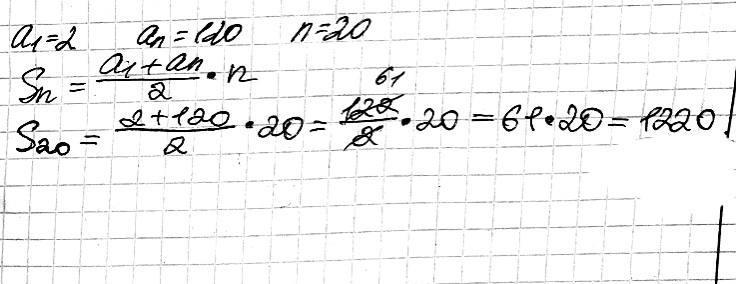 a₁=2 aₙ=120 n=20
Sₙ = (a₁+aₙ)/2 • n
S₂₀ = (2+120)/2 • 20 = 122/2 61 • 20 = 61•20 = 1220